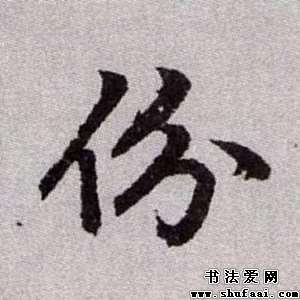 份
书法爱网
www.shufaai.com